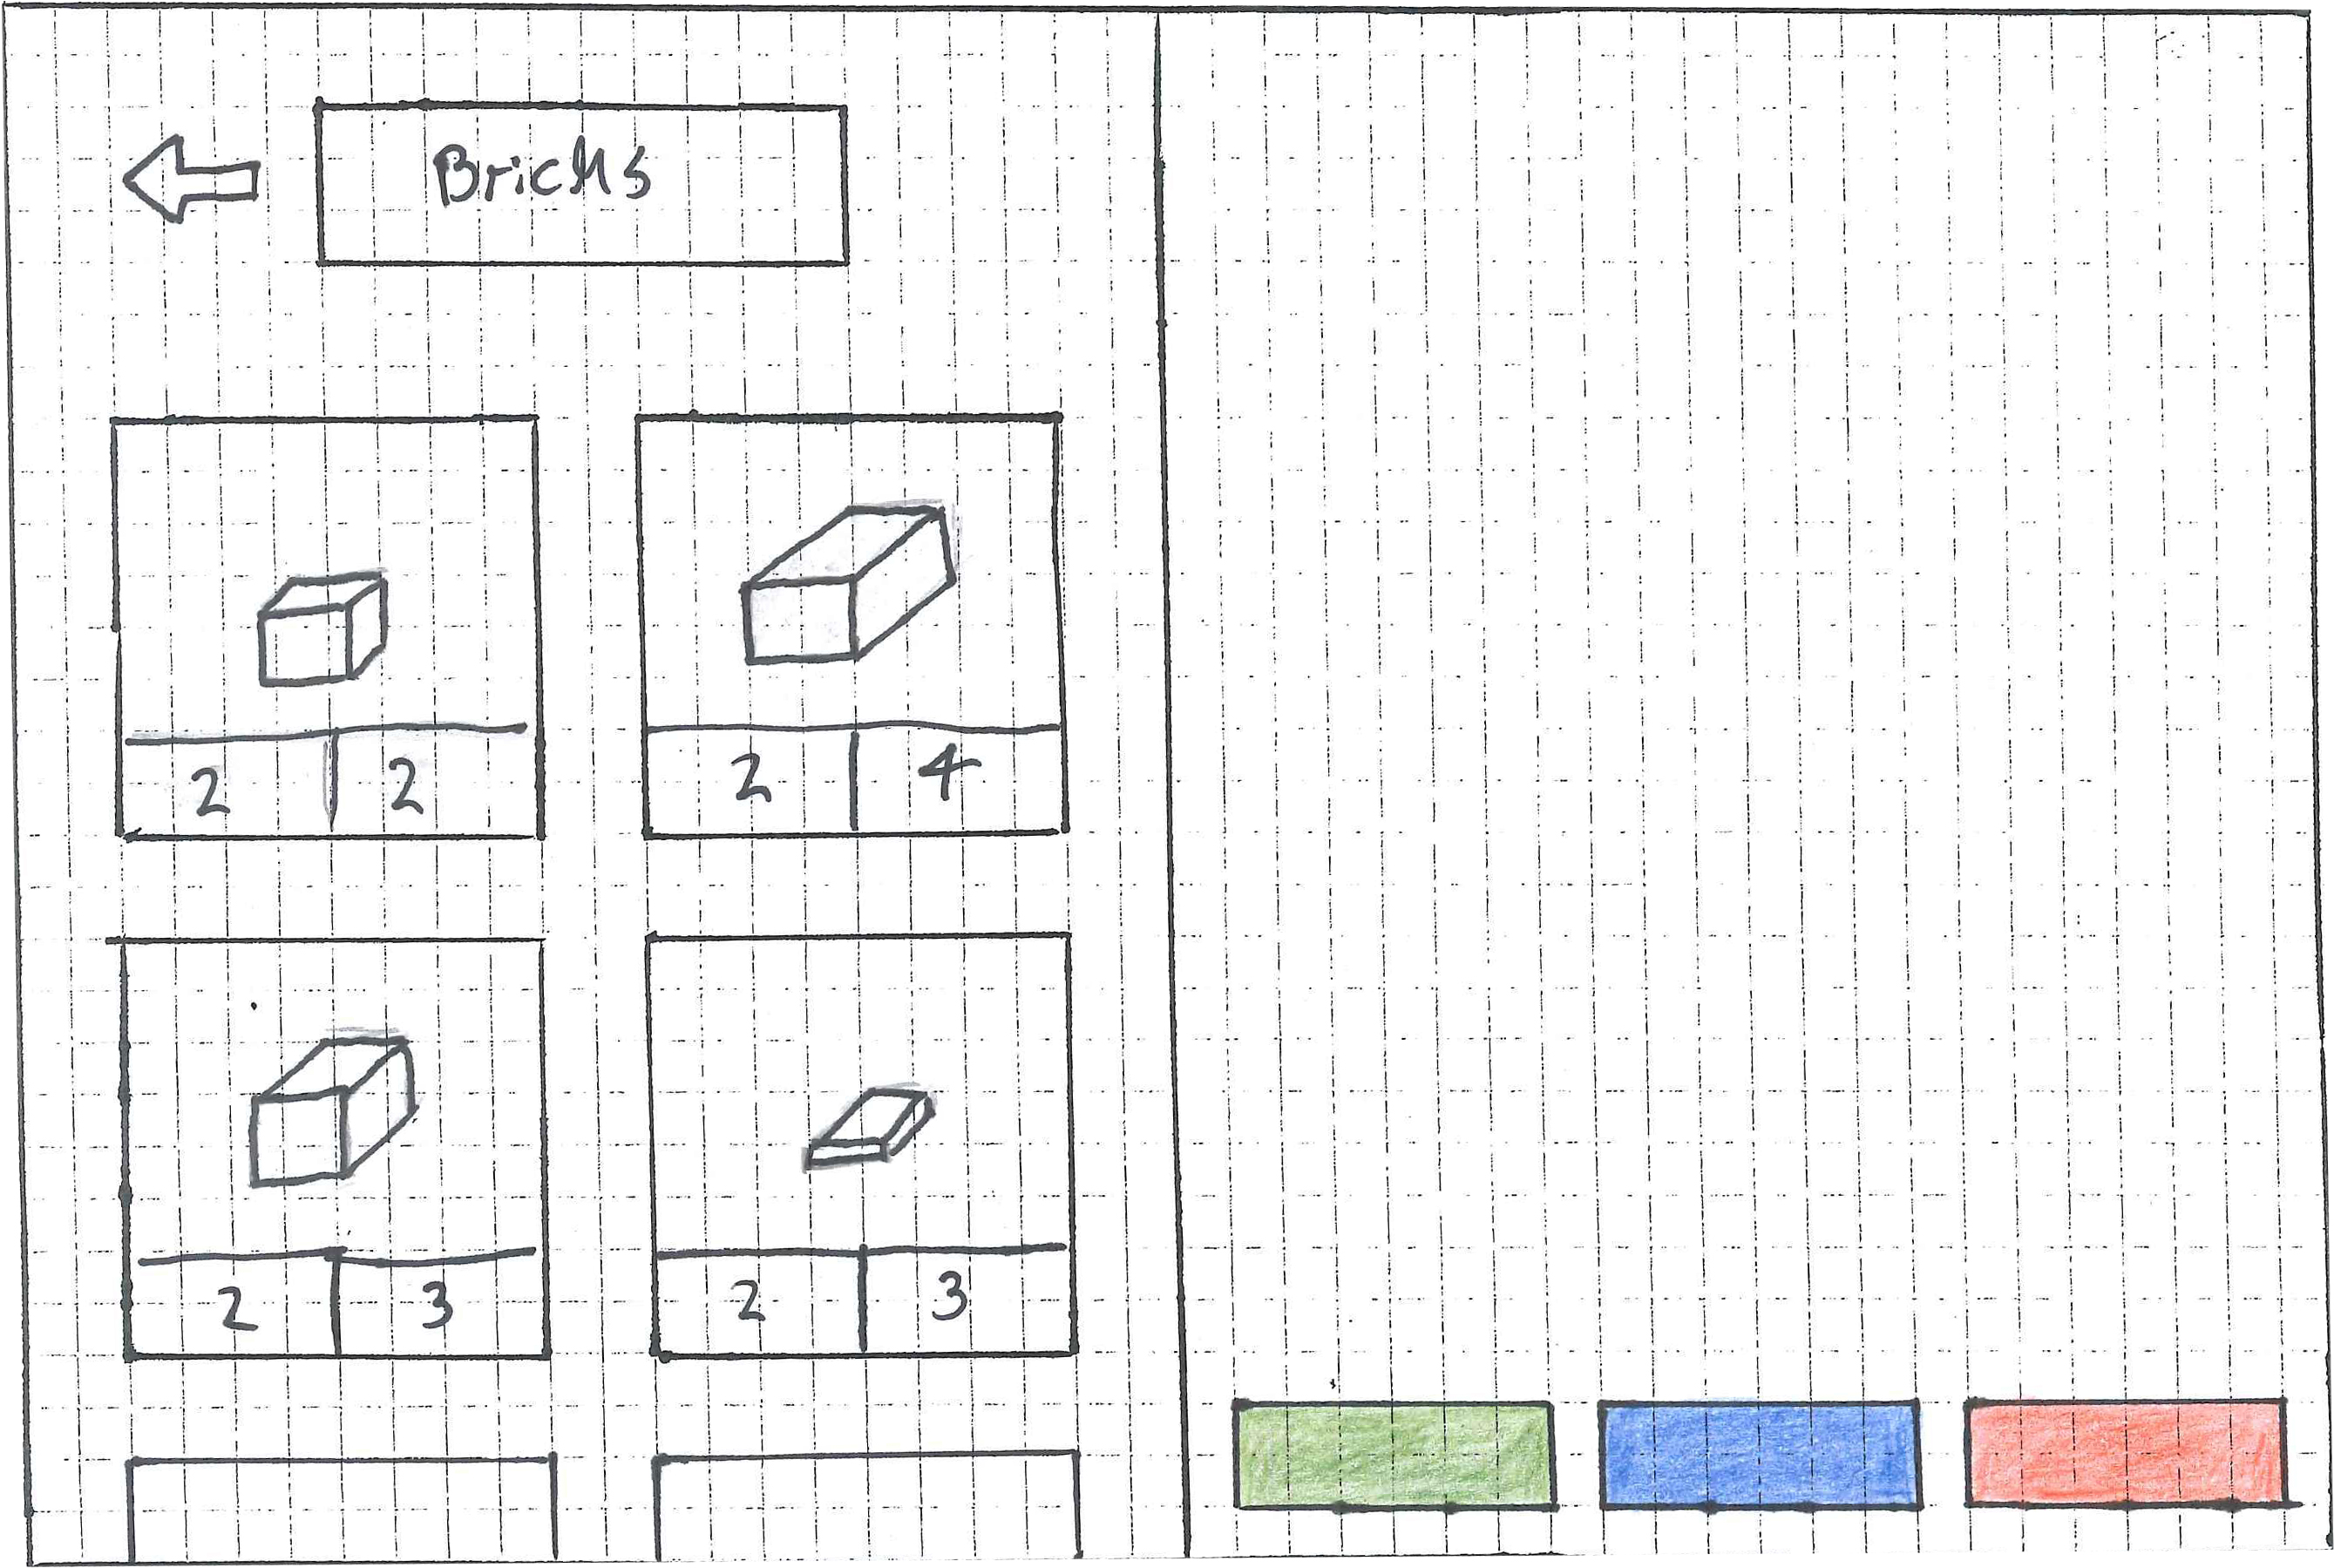 Bricks
2 2
2 4
2 3
2 3